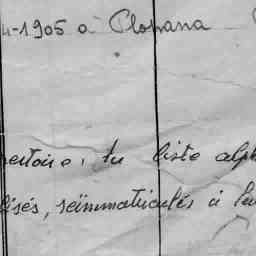 4-1905 à Plohana
ertoire, tu liste alph
lisés, réimmatriculés à leu